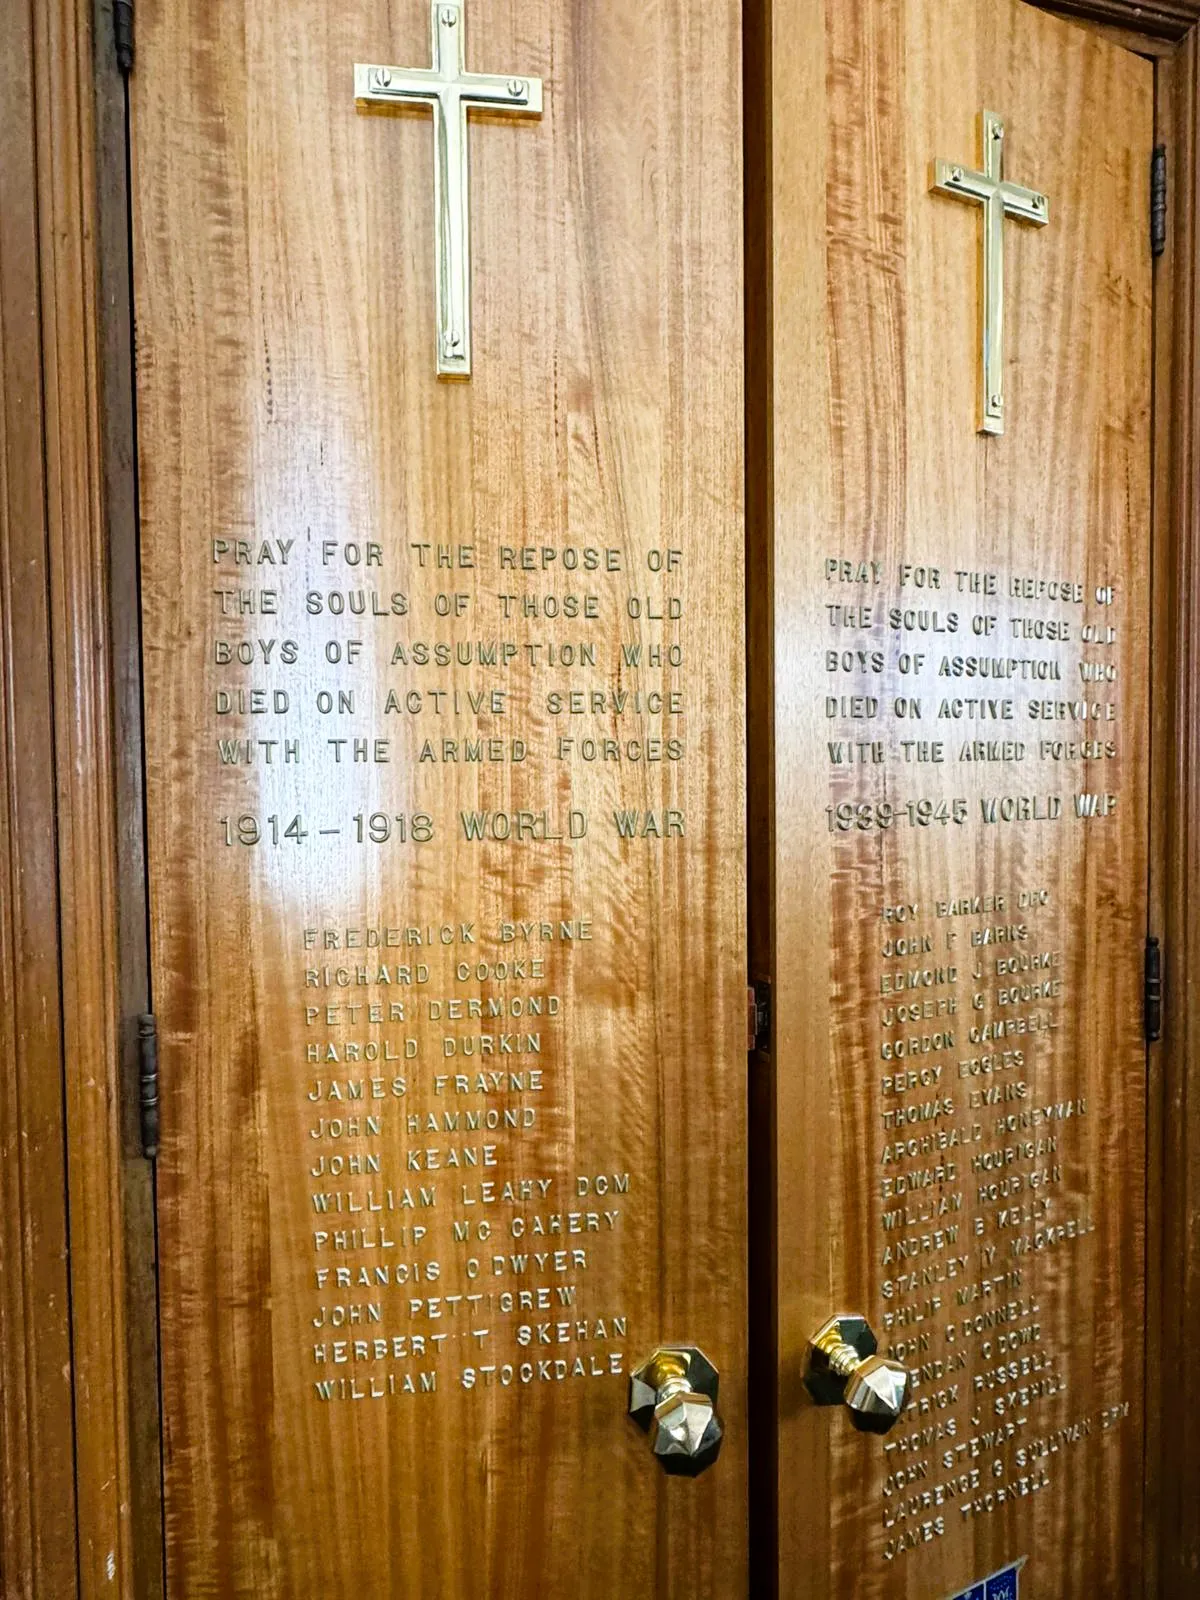 PRAY FOR THE REPOSE OF
THE SOULS OF THOSE OLD
BOYS OF ASSUMPTION WHO
DIED ON ACTIVE SERVICE
WITH THE ARMED FORCES
1914-1918 WORLD WAR
FREDERICK BYRNE
RICHARD COOKE
PETER DERMOND
HAROLD DURKIN
JAMES FRAYNE
JOHN HAMMOND
JOHN KEANE
WILLIAM LEAHY DCM
PHILLIP MC CAHERY
FRANCIS O DWYER
JOHN PETTIGREW
HERBERT T SKEHAN
WILLIAM STOCKDALE
PRAY FOR THE REPOSE OF
THE SOULS OF THOSE OLD
BOYS OF ASSUMPTION WHO
DIED ON ACTIVE SERVICE
WITH THE ARMED FORCES
1939-1945 WORLD WAR
ROY BARKER DFC
JOHN F BARNS
EDMOND J BOURKE
JOSEPH G BOURKE
GORDON CAMPBELL
PERCY ECCLES
THOMAS EVANS
ARCHIBALD HONEYMAN
EDWARD HOURIGAN
WILLIAM HOURIGAN
ANDREW B KELLY
STANLEY MACKRELL
PHILIP MARTIN
JOHN O DONNELL
ENDAN O DOWD
TRICK RUSSELL
THOMAS J SKEHILL
JOHN STEWART
LAURENCE G SULLIVAN DFM
JAMES THORNELL